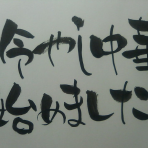 冷やし中華
始めました